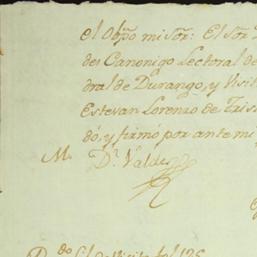 el Obpo mi Sor: El Sor
des Canonigo Lectoral de
dral de Durango, y Visit
Estevan Lorenzo de Tris
dó, y firmó por ante mi
M. Dr. Valdes